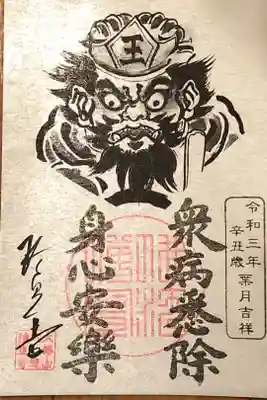 王
衆病悉除
身心安樂
令和三年
辛丑歳 葉月吉祥